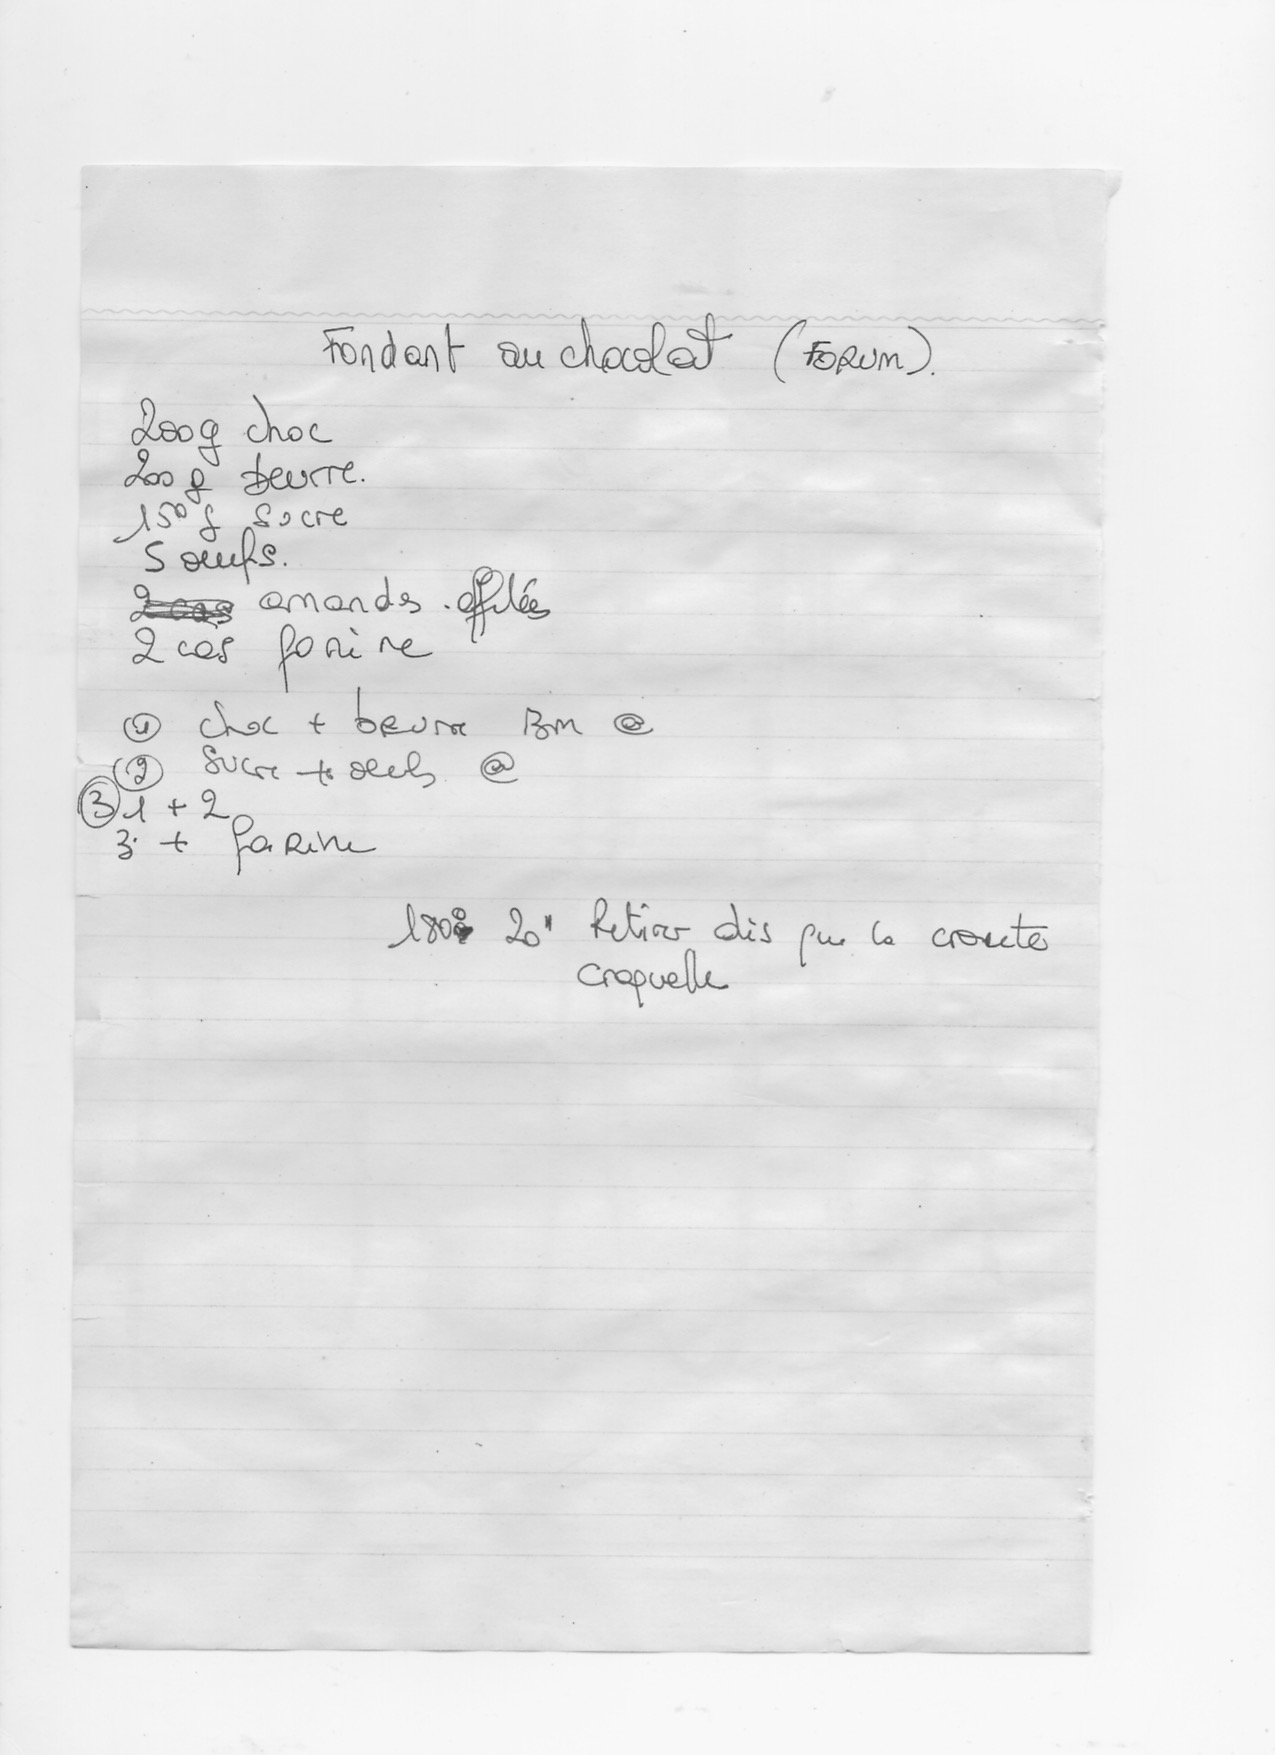 Fondant au chocolat (FORUM).
200g choc
200g beurre.
150g sucre
5 oeufs.
2 cas amandes effilées
2 cas farine
① choc + beurre BM @
② sucre + oeufs @
③ 1 + 2
3 + farine
180° 20" Retirer dès que la croute
craquelle